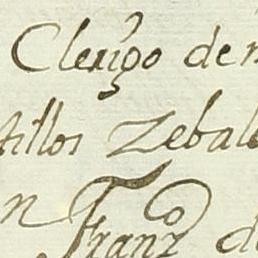 Clerigo de
tillos Zebal
n Franco d